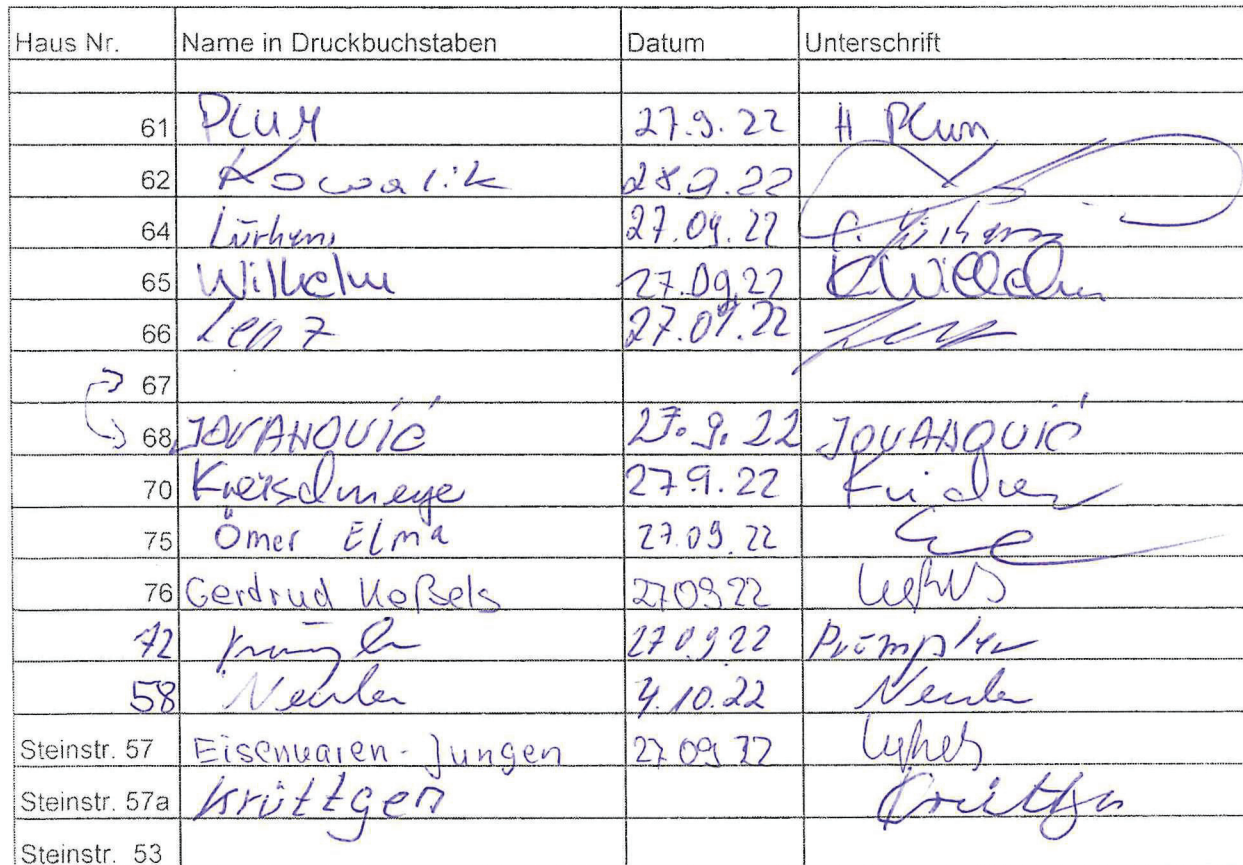 Haus Nr. Name in Druckbuchstaben Datum Unterschrift
61 PLUM 27.9.22 H Plum
62 Kowalik 28.9.22
64 Lürkens 27.09.22
65 Wilhelm 27.09.22 K Wilhelm
66 Lenz 27.09.22 Lenz
67
68 JOVANOVIĆ 27.9.22 JOVANOVIĆ
70 27.9.22
75 Ömer Elma 27.09.22
76 Gertrud Keßels 270922
72 270922 Prömpler
58 4.10.22
Steinstr. 57 Eisenwaren-Jungen 27.0922
Steinstr. 57a Krüttgen Krüttgen
Steinstr. 53